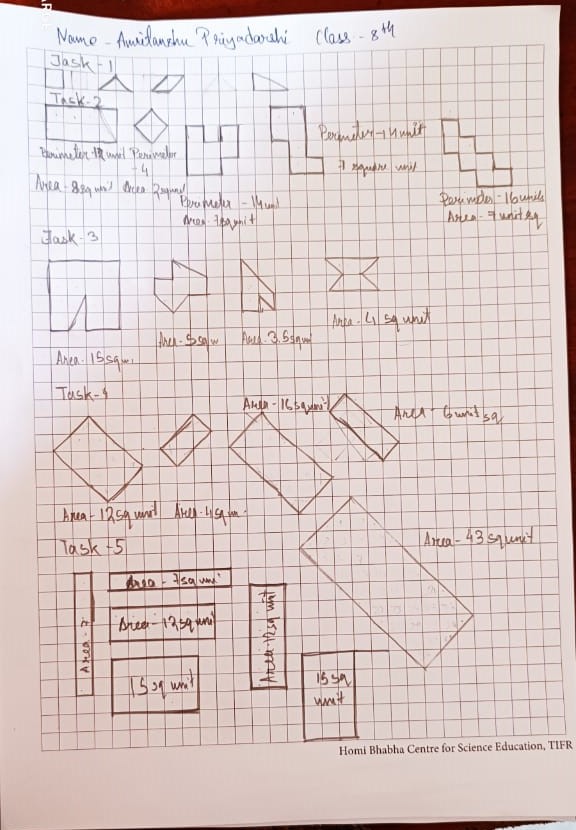 Name - Amritanshu Priyadarshi Class - 8th
Task - 1
Task - 2
Perimeter - 14 unit
7 square unit
Perimeter 12 unit Perimeter
- 4
Area - 8 sq unit Area 2 sq unit
Perimeter - 14 unit
Area - 7 sq unit
Perimeter - 16 units
Area - 7 unit sq
Task - 3
Area - 15 sq u.
Area - 5 sq u
Area - 3.5 sq u
Area - 4 sq unit
Task - 4
Area - 16 sq unit
Area - 6 unit sq
Area - 12 sq unit Area - 4 sq un.
Area - 43 sq unit
Task - 5
Area - 7 sq uni
Area - 7
Area - 12 sq unit
Area - 12 sq unit
15 sq unit
15 sq
unit
Homi Bhabha Centre for Science Education, TIFR